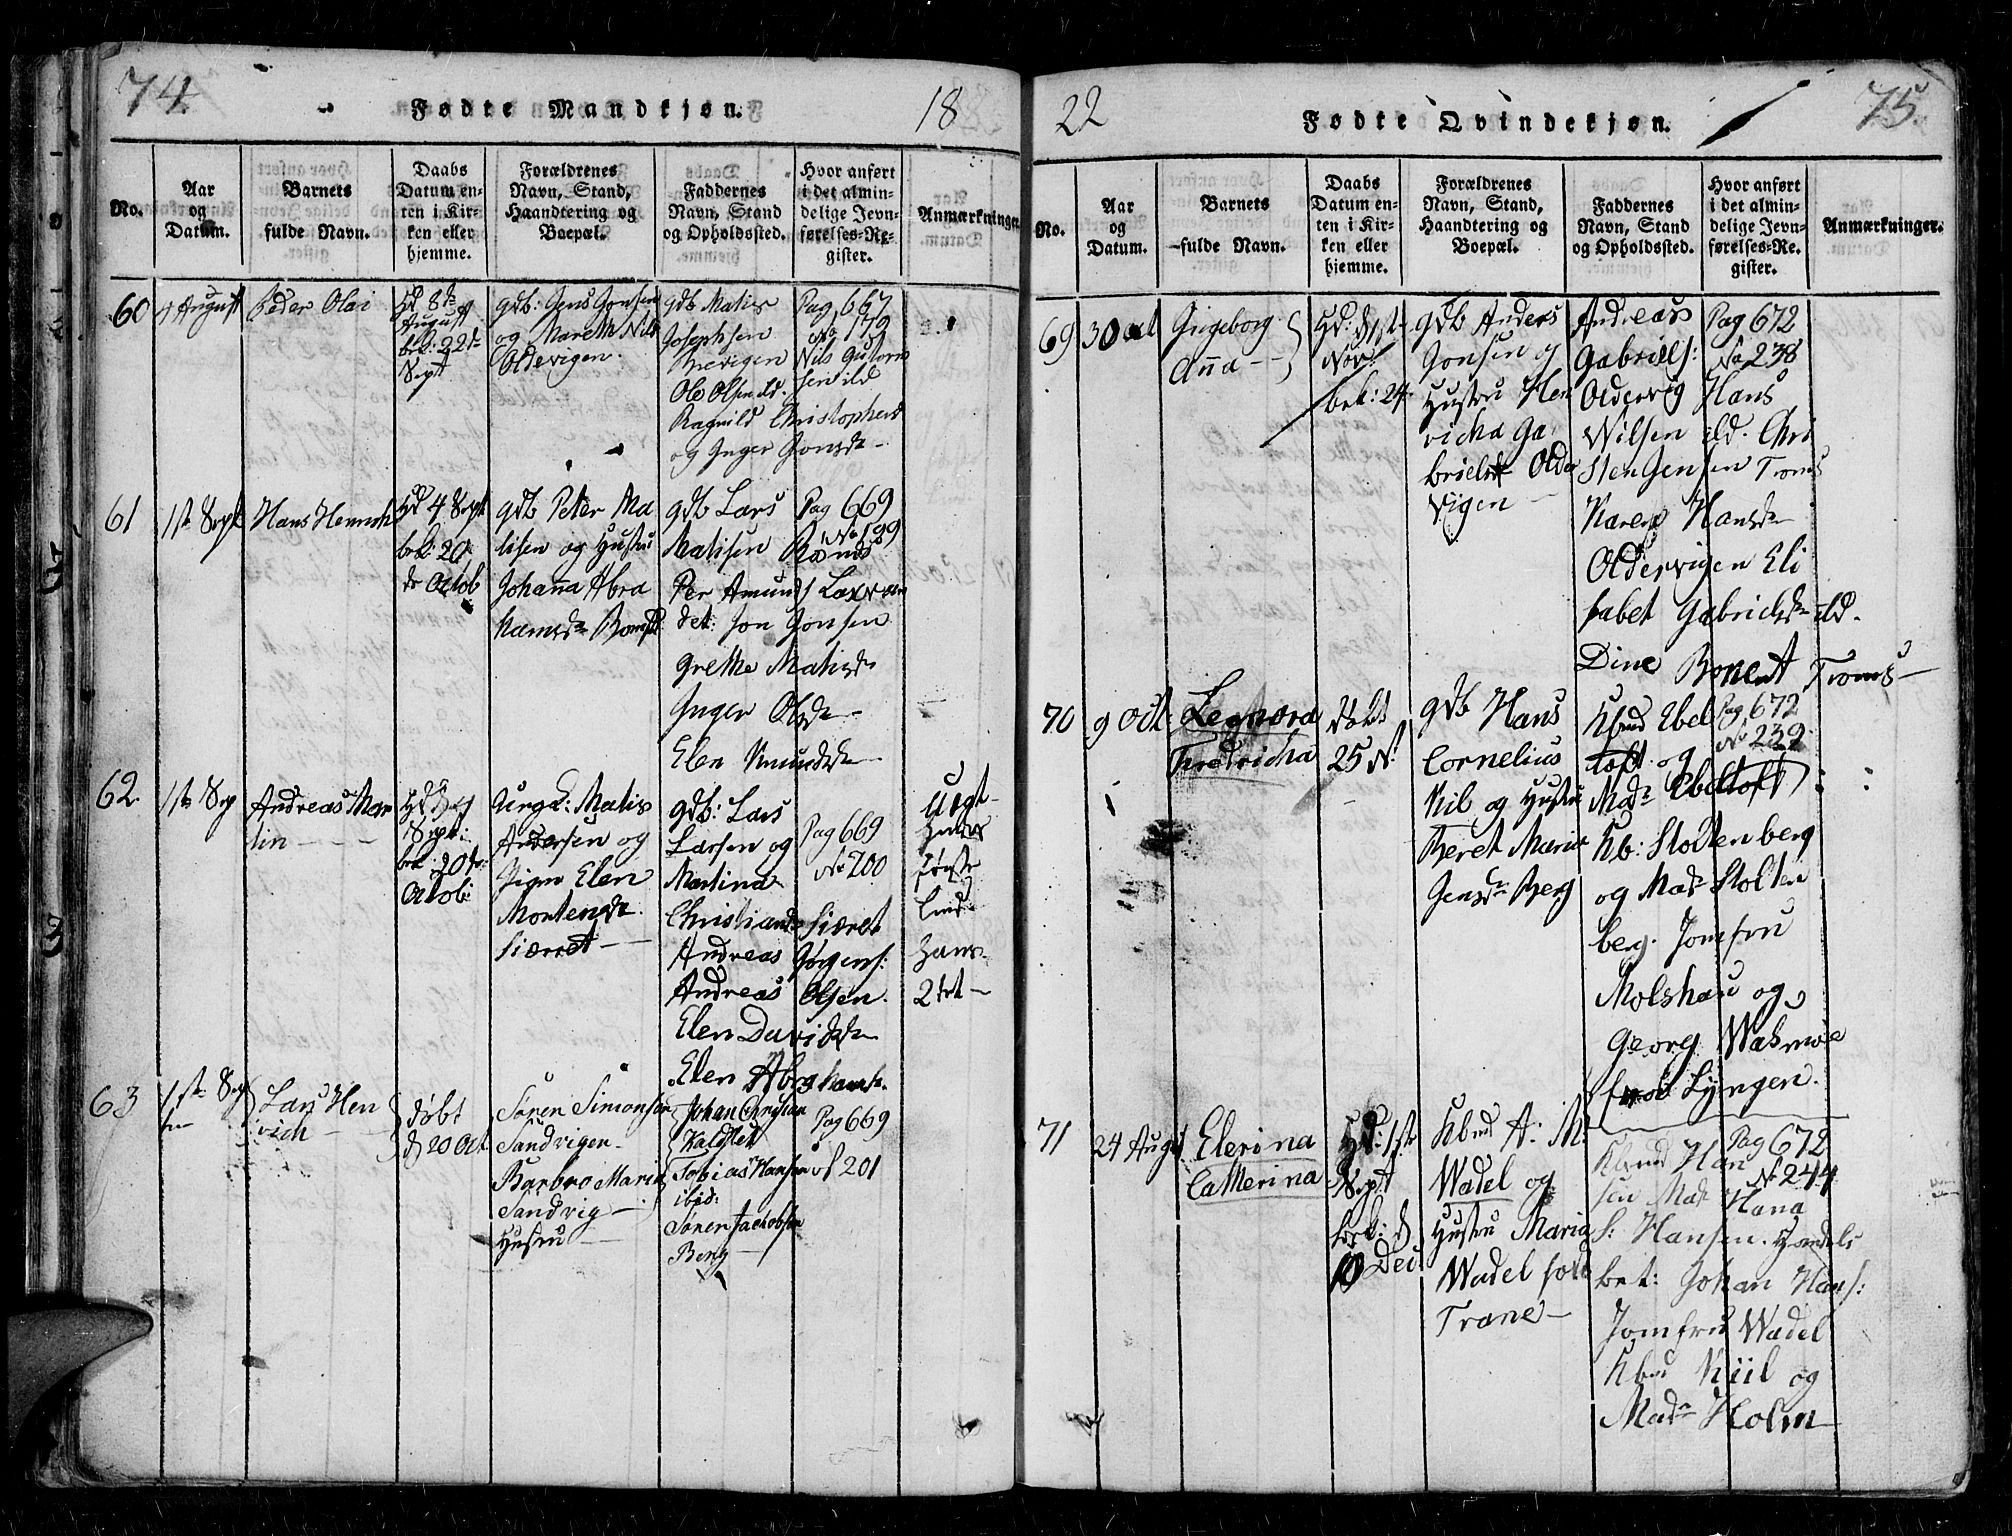 74
Fødte Mandkjøn.
18
No.
Aar
og
Datum.
Barnets
fulde Navn.
Daabs
Datum en-
ten i Kir-
ken eller
hjemme.
Forældrenes
Navn, Stand,
Haandtering og
Boepæl.
Faddernes
Navn, Stand
og Opholdssted.
Hvor anført
i det almin-
delige Jevn-
førelses-Re-
gister.
Anmærkninger.
60
August
Peder Olai
Hd 8de
August
bek: 22de
Sept
gdb: Jens Jonsen
og Marethe Nils
Oldevigen.
gdb Matis
Josephsen
Brevigen
Ole Olsen ild.
Ragnild Christophersd
og Inger Jonsdr
Pag 667
No 179
Nils Gutorm
sen ild
61
1ste Sept
Hans Henrich
Hd 4 Sept
bek: 20
de Octob
gdb Peter Ma
tisen og Hustru
Johaña Abra
hamsdr
gdb Lars
Matisen
Per Amunds
Jon Jonsen
Grethe Matisdr
Inger Olsdr
Elen Knudsdr
Pag 669
No 199
62.
1ste Sep
Andreas Mar
tin
Sept:
bek: 20de
Octob:
Ungk: Matis
Andersen og
Pigen Elen
Mortensdr
Siærret
gdb: Lars
Larsen og
Martina
Christiansdr Siæret
Andreas Jørgens:
Andreas Olsen
Elen Davidsdr
Elen Abrahamsdr.
Pag 669
No 200
Uegt
hans
første
hans
2det
63
1ste Sep
Lars Hen
rich
døbt
d 20 Oct
Søren Simonsen
Sandvigen
Barbro Maria
Sandvig
Hustru
Johan Christian
Kaldslet
Tobias Hansen
ibid:
Søren Jachobsen
Berg
Pag 669
No 201
22
Fødte Qvindekjøn.
75.
No.
Aar
og
Datum.
Barnets
fulde Navn.
Daabs
Datum en-
ten i Kir-
ken eller
hjemme.
Forældrenes
Navn, Stand,
Haandtering og
Boepæl.
Faddernes
Navn, Stand
og Opholdssted.
Hvor anført
i det almin-
delige Jevn-
førelses-Re-
gister.
Anmærkninger.
69
30 Oct
Ingeborg
Aña
Hd: d 1ste
Nov:
bek: 24
gdb Anders
Jonsen og
Hustru Hen
richa Ga
brielsdr Older
vigen
Andreas
Gabriels:
Oldervig Hans
Nilsen ild. Chri
sten Jensen Troms
Karen Hansdr
Oldervigen Eli
sabet Gabrielsdr ild.
Dine Bonent Troms
Pag 672
No 238
70
9 Oct:
Leonora
Fredricha
døbt
25 N:
gdb Hans
Cornelius
Kil og Hustru
Beret Maria
Jensdr Berg
Kbmd Ebel
toft og
Madr Ebeltoft
Kb: Stoltenberg
og Madr Stolten
berg. Jomfru
Molshau og
Georg Wasmøe
fra Lyngen.
Pag 672
No 239
71
24 Augst
Elerina
Catherina
Hd: 1ste
Sept
bek: d
10 Dec
Kbmd A: M:
Wadel og
Hustru Maria
Wadel født
Trane
Kbmd Han
sen Madr Hana
S: Hansen. Handels
bet: Johan Hans:
Jomfru Wadel
Kbmd Kiil og
Madr Holm
Pag 672
No 244